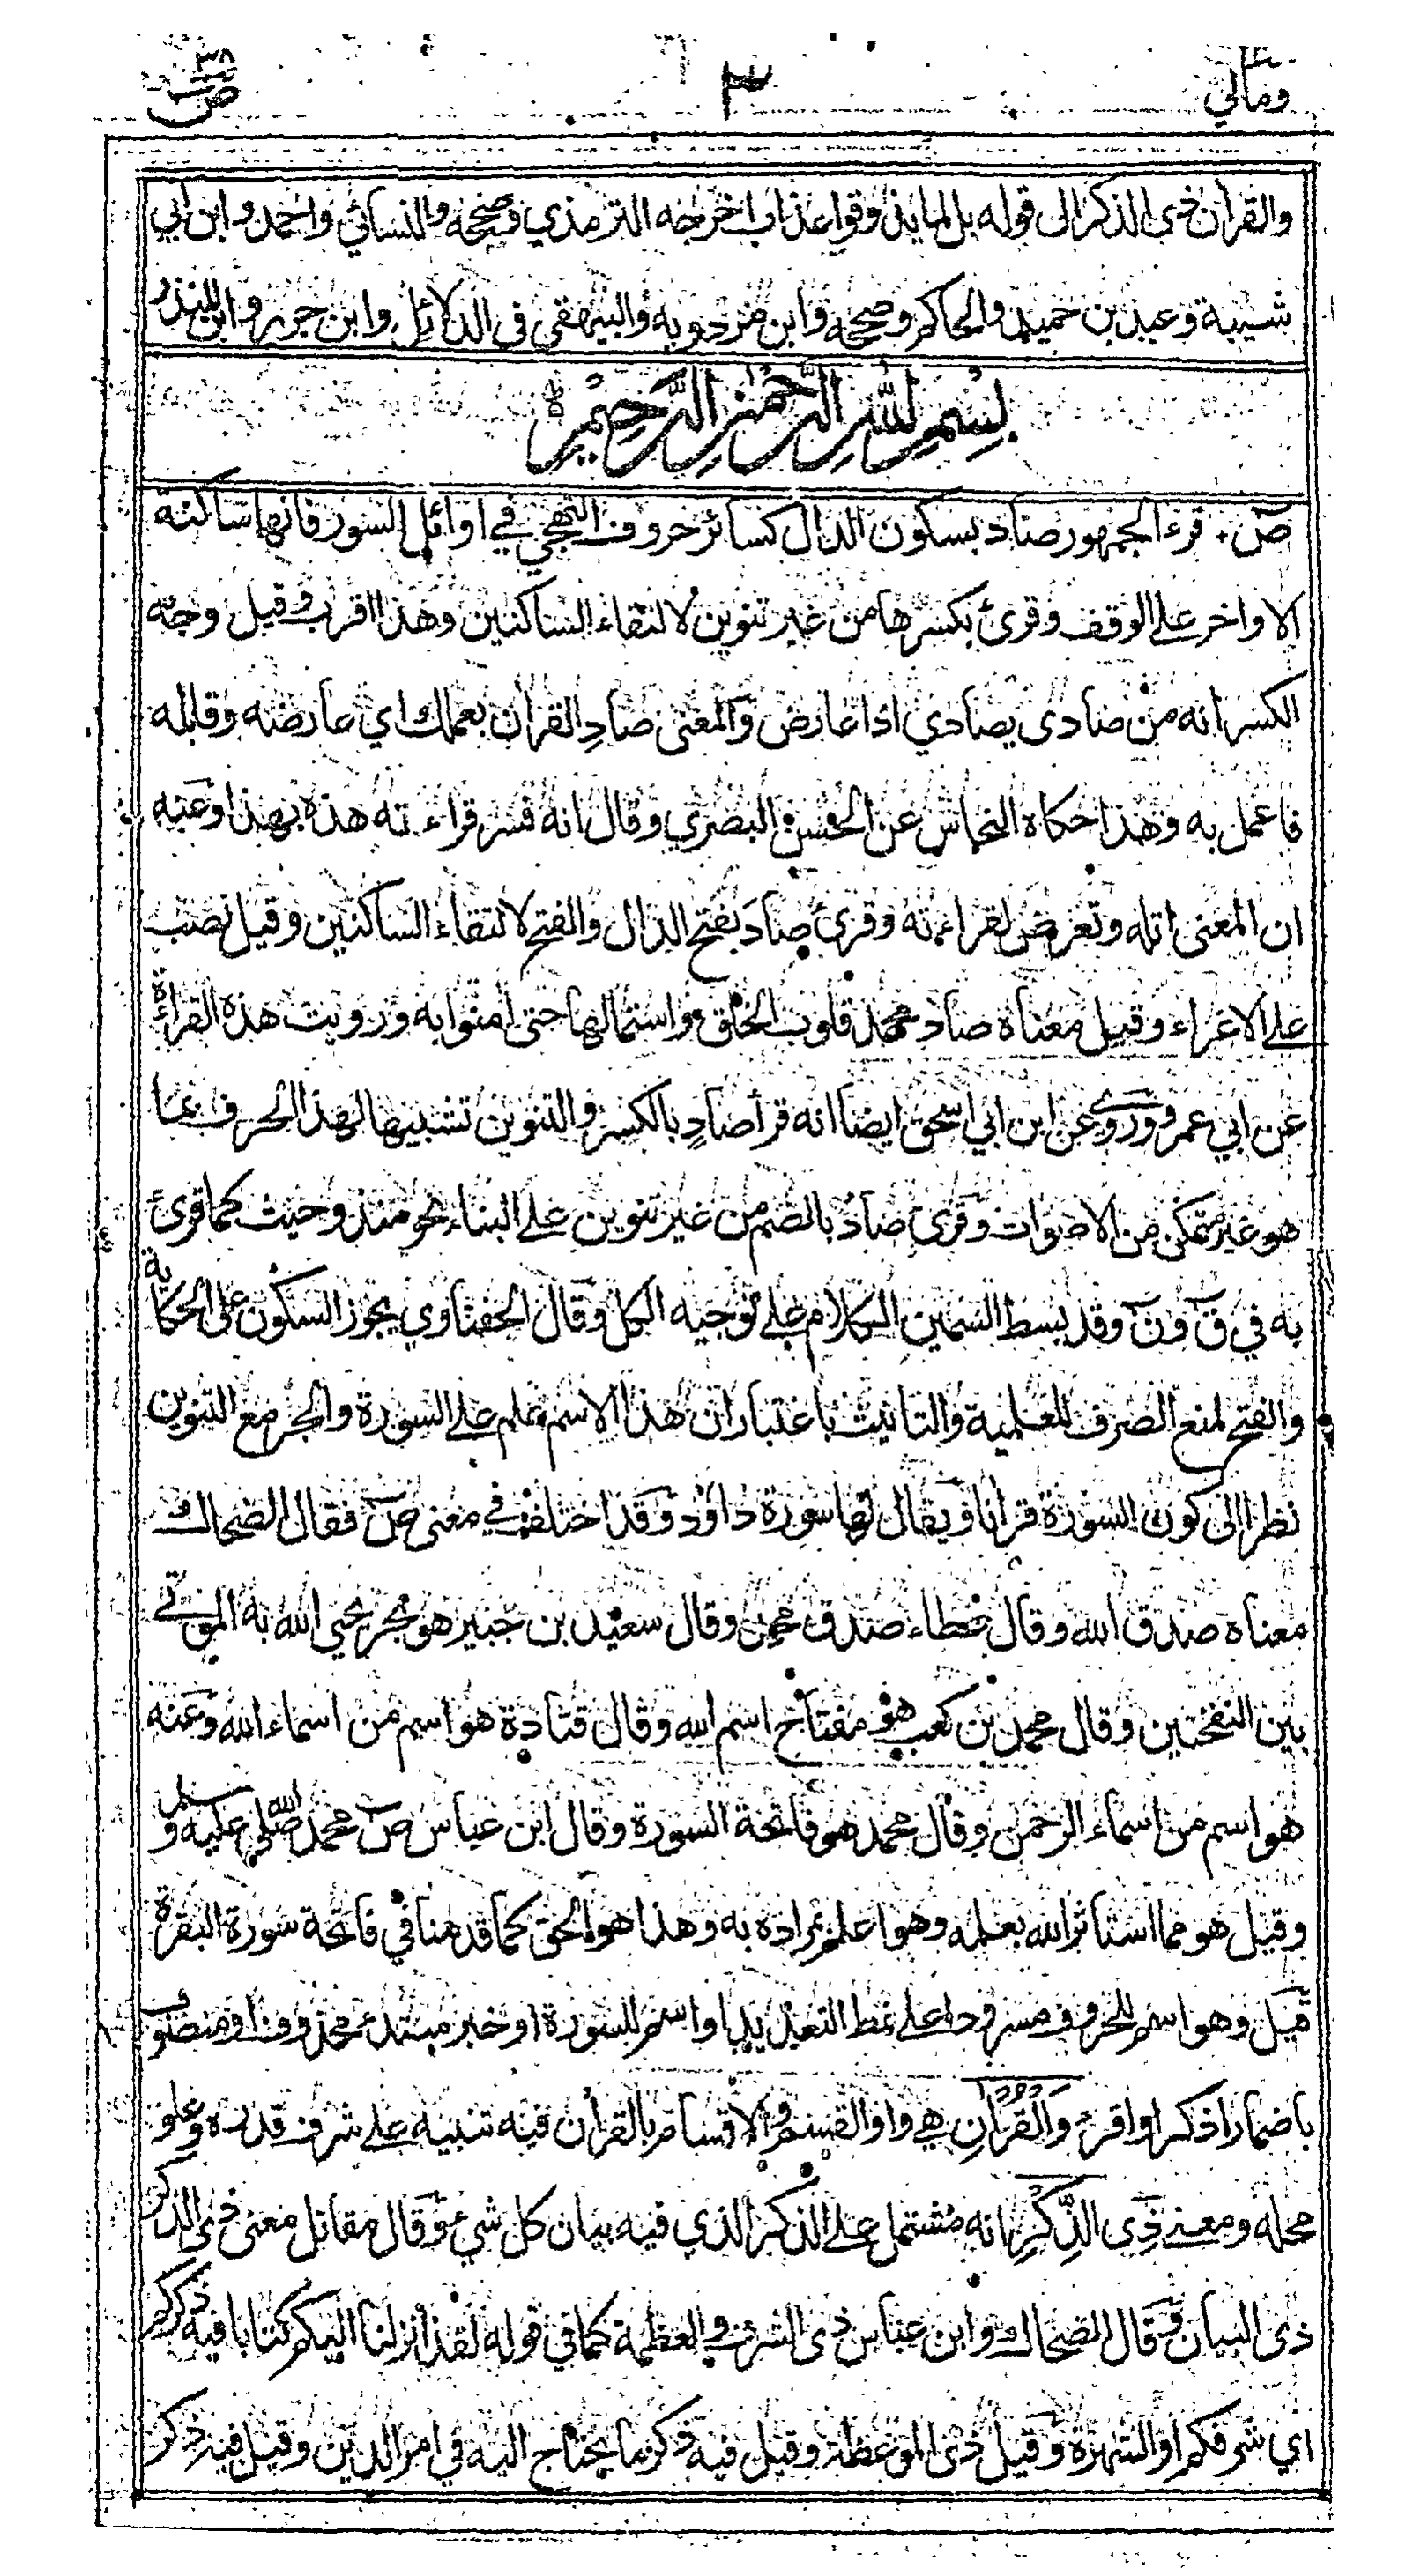 ومالي ٣ ص ٣٨
والقرآن ذي الذكر الى قوله بل لما يذوقوا عذاب اخرجه الترمذي وصححه والنسائي واحمد وابن ابي
شيبة وعبد بن حميد والحاكم وصححه وابن مردويه والبيهقي في الدلائل وابن جرير وابن المنذر
بسم الله الرحمن الرحيم
صٓ قرء الجمهور صاد بسكون الدال كسائر حروف التهجي في اوائل السور فانها ساكنة
الاواخر على الوقف وقرئ بكسرها من غير تنوين لالتقاء الساكنين وهذا اقرب وقيل وجه
الكسر انه من صادى يصادي اذا عارض والمعنى صادِ القرآن بعملك اي عارضه وقابله
فاعمل به وهذا حكاه النحاس عن الحسن البصري وقال انه فسر قراءته هذه بهذا وعنه
ان المعنى اتله وتعرض لقراءته وقرئ صادَ بفتح الدال والفتح لالتقاء الساكنين وقيل نصب
على الاغراء وقيل معناه صاد محمد قلوب الخلق واستمالها حتى امنوا به ورويت هذه القراءة
عن ابي عمرو وروي عن ابن ابي اسحق ايضا انه قرأ صادٍ بالكسر والتنوين تشبيها لهذا الحرف بما
هو غير متمكن من الاصوات وقرئ صادُ بالضم من غير تنوين على البناء نحو منذ وحيث كما قرئ
به في قٓ ونٓ وقد بسط السمين الكلام على توجيه الكل وقال الحفناوي يجوز السكون على الحكاية
والفتح لمنع الصرف للعلمية والتانيث باعتبار ان هذا الاسم علم على السورة والجر مع التنوين
نظرا الى كون السورة قرآنا ويقال لها سورة داود وقد اختلف في معنى صٓ فقال الضحاك
معناه صدق الله وقال عطاء صدق محمد وقال سعيد بن جبير هو بحر يحي الله به الموتى
بين النفختين وقال محمد بن كعب هو مفتاح اسم الله وقال قتادة هو اسم من اسماء الله وعنه
هو اسم من اسماء الرحمن وقال محمد هو فاتحة السورة وقال ابن عباس صٓ محمد صلى الله عليه وسلم
وقيل هو مما استاثر الله بعلمه وهو اعلم بمراده به وهذا هو الحق كما قدمنا في فاتحة سورة البقرة
قيل وهو اسم للحروف مسرودا على نمط التعديد او اسم للسورة او خبر مبتدء محذوف او منصوب
باضمار اذكر او اقرء وَالْقُرْآنِ هي واو القسم والاقسام بالقرآن فيه تنبيه على شرف قدره وعلو
محله ومعنى ذِى الذِّكْرِ انه مشتمل على الذكر الذي فيه بيان كل شيء وقال مقاتل معنى ذى الذكر
ذى البيان وقال الضحاك وابن عباس ذى الشرف والعظمة كما في قوله لقد انزلنا اليكم كتابا فيه ذكركم
اي شرفكم او الشهرة وقيل ذى الموعظة وقيل فيه ذكر ما يحتاج اليه في امر الدين وقيل فيه ذكر